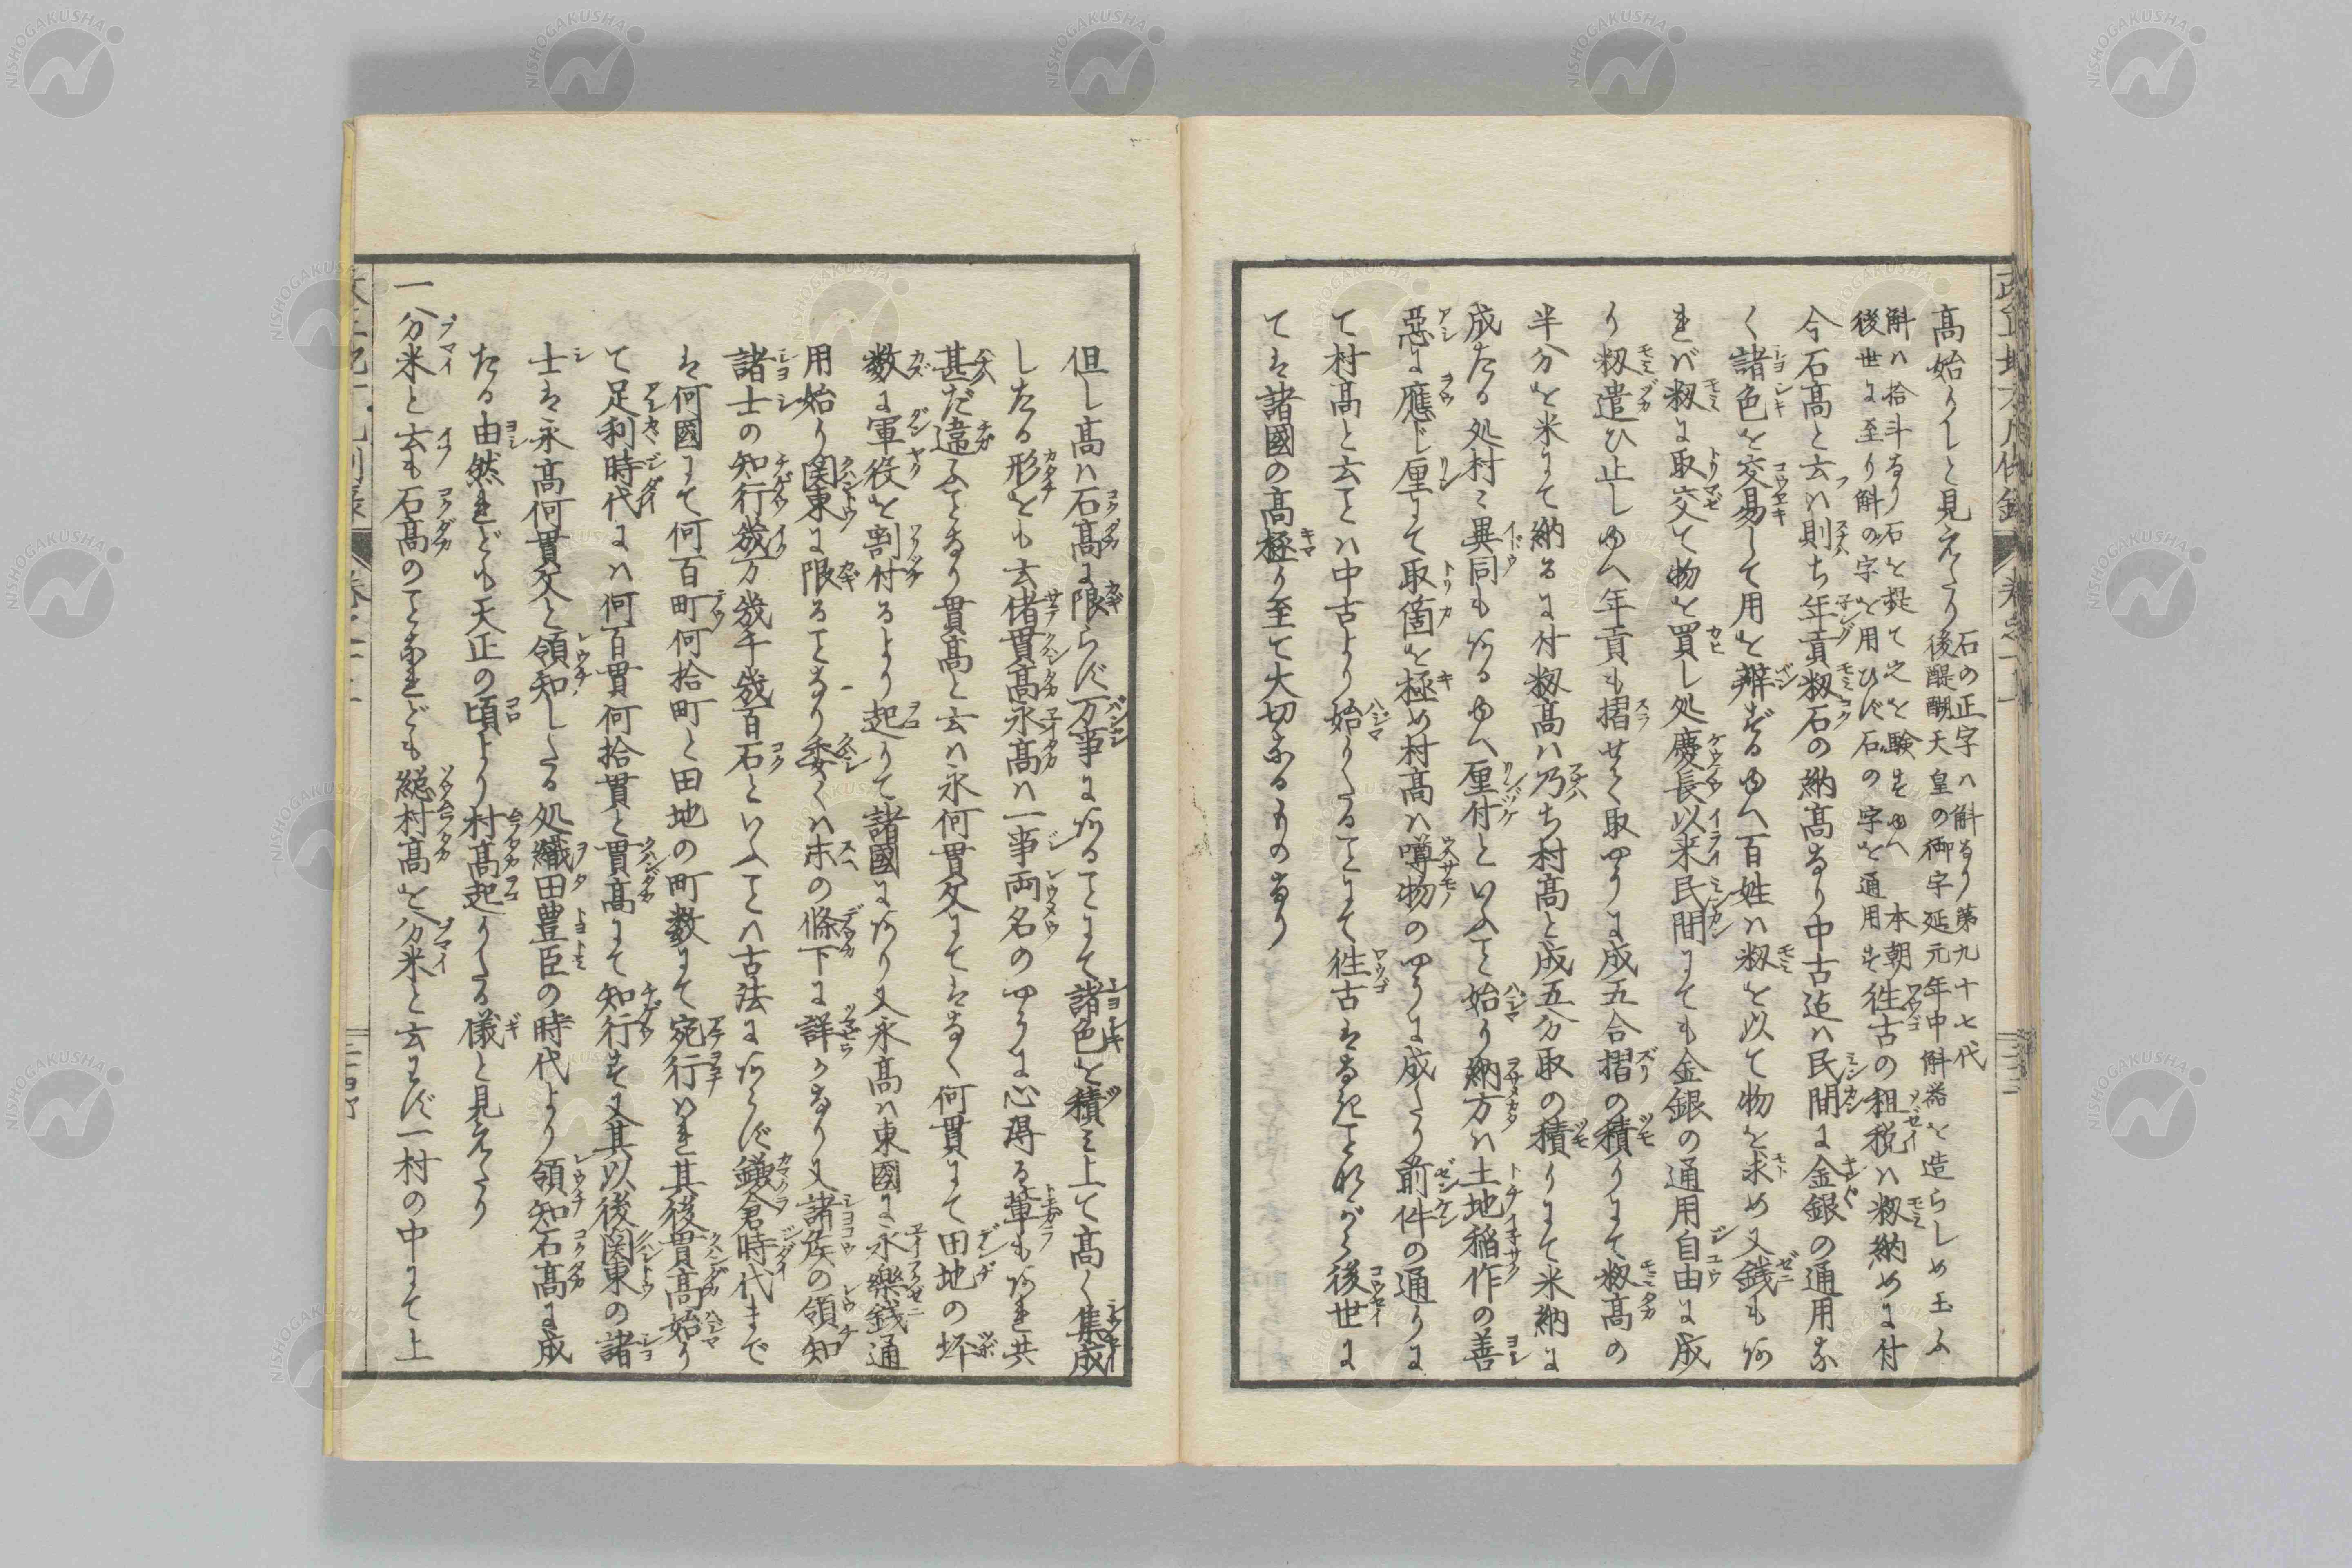 高始りしと見えたり石の正字ハ斛なり第九十七代
後醍醐天皇の御宇延元年中斛器を造らしめ玉ふ
斛ハ拾斗なり石を提て之を験すゆへ本朝往古の租税ハ籾納めに付
後世に至り斛の字を用ひず石の字を通用す
今石高と云ハ則ち年貢籾石の納高なり中古迄ハ民間に金銀の通用な
く諸色を交易して用を辨ずるゆへ百姓ハ籾を以て物を求め又銭もあ
れバ籾に取交て物を買し処慶長以来民間にても金銀の通用自由に成
り籾遣ひ止しゆへ年貢も摺せて取やうに成五合摺の積りにて籾高の
半分を米にて納るに付籾高ハ乃ち村高と成五分取の積りにて米納に
成たる処村々異同もあるゆへ厘付といふこと始り納方ハ土地稲作の善
悪に應じ厘にて取箇を極め村高ハ噂物のやうに成たり前件の通りに
て村高と云ことハ中古より始りたることにて往古はなきことながら後世に
ては諸國の高極り至て大切なるものなり
但し高ハ石高に限らず万事にあることにて諸色を積み上て高く集成
したる形をも云偖貫高永高ハ一事両名のやうに心得る輩もあれ共
甚だ違ふことなり貫高と云ハ永何貫文にてはなく何貫にて田地の坪
数に軍役を割付るより起りて諸國にあり又永高ハ東國に永樂銭通
用始り関東に限ることなり委くハ末の條下に詳かなり又諸侯の領知
諸士の知行幾万幾千幾百石といふことハ古法にあらず鎌倉時代まで
は何國にて何百町何拾町と田地の町数にて宛行ハれ其後貫高始り
て足利時代にハ何百貫何拾貫と貫高にて知行す又其以後関東の諸
士は永高何貫文と領知したる処織田豊臣の時代より領知石高に成
たる由然れども天正の頃より村高起りたる儀と見えたり
一分米と云も石高のことなれども総村高を分米と云はず一村の中にて上